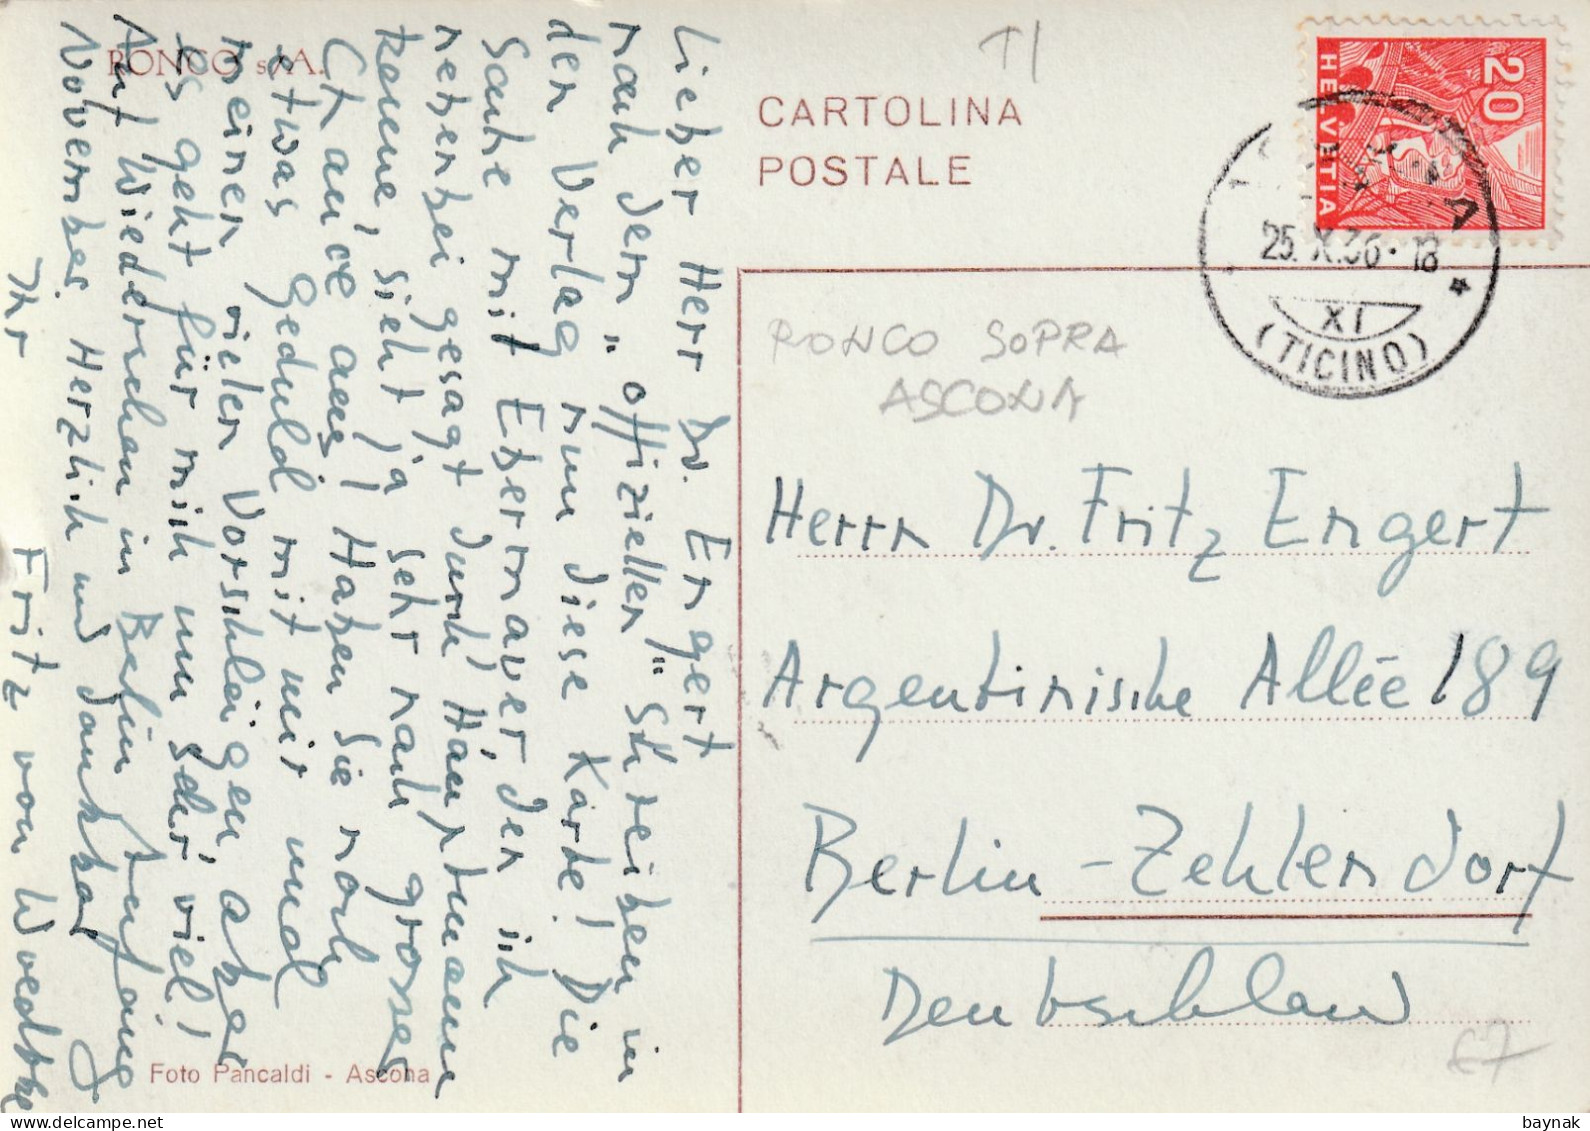 RONCO s/A.
CARTOLINA
POSTALE
TI
20
HELVETIA
25. X. 36 · 18
XI
(TICINO)
RONCO SOPRA
ASCONA
Lieber Herr Dr. Engert
nach dem "offiziellen" Schreiben an
den Verlag nun diese Karte! Die
Sache mit Ebermayer, den ich
nebenbei gesagt durch Hauptmann
kenne, sieht ja sehr nach grosser
Chance aus! Haben Sie noch
etwas Geduld mit mir und
meinen vielen Vorschlägen, aber
es geht für mich um sehr viel!
Auf Wiedersehen in Berlin Anfang
November. Herzlich und dankbar
Ihr Fritz von Woedtke
Herrn Dr. Fritz Engert
Argentinische Allée 189
Berlin-Zehlendorf
Deutschland
€7
Foto Pancaldi - Ascona
baynak